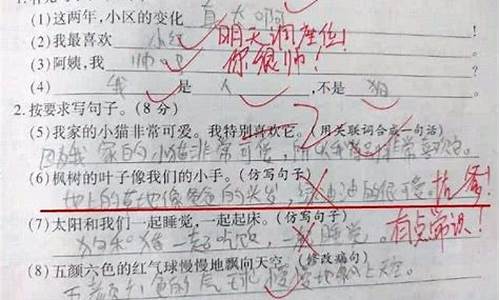 (1)这两年,小区的变化 真大啊
(2)我最喜欢 小红 明天调座位!
(3)阿姨,我 帅吗 你很帅!
(4) 我 是 人 ,不是 狗
2.按要求写句子。(8 分)
(5)我家的小猫非常可爱。我特别喜欢它。(用关联词合成一句话)
因为我家的小猫非常可爱,所以我非常喜欢它。
(6)枫树的叶子像我们的小手。(仿写句子)
地上的草地像爸爸的头发,绿油油的很可爱。 抗争!
(7)太阳和我们一起睡觉,一起起床。(仿写句子)
狗和猪一起吃饭,一起睡觉。 有点常识!
(8)五颜六色的红气球慢慢地飘向天空。(修改病句)
五颜六色的气球慢慢地飘上天空。